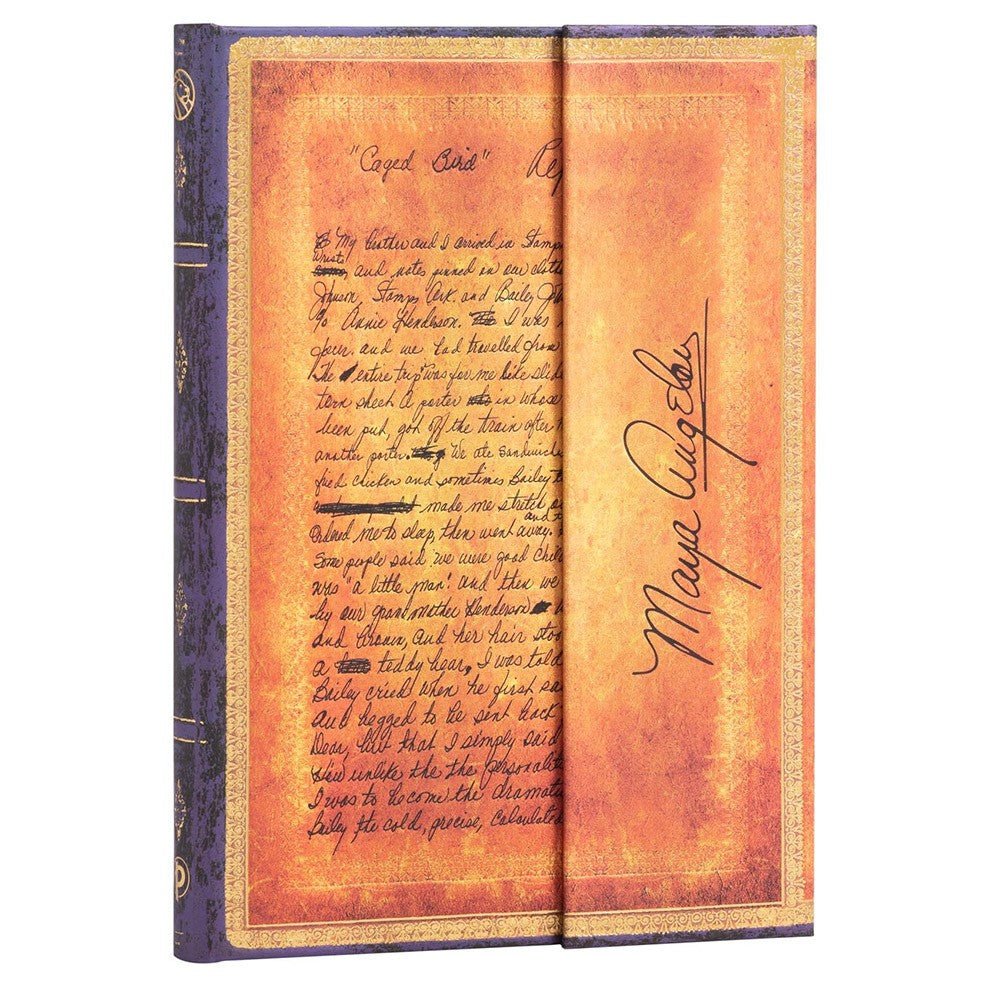 "Caged Bird" Re
My brother and I arrived in Stamp
Wrists
and notes pinned on our cloth
Johnson, Stamps Ark. and Bailey Jo
c/o Annie Henderson. I was
and we had travelled from
The entire trip was for me like slid
torn sheet A porter in whose
been put, got off the train after
another porter. We ate sandwich
fried chicken and sometimes Bailey
made me stretch
and
Ordered me to sleep, then went away.
Some people said we were good chil
was "a little man". and then we
by our grandmother Henderson
and brown, and her hair stoo
a teddy bear, I was told
Bailey cried when he first sa
and begged to be sent back
Dear, but that I simply said
How unlike the the personalit
I was to become the dramat
Bailey the cold, precise, calculated
Maya Angelou